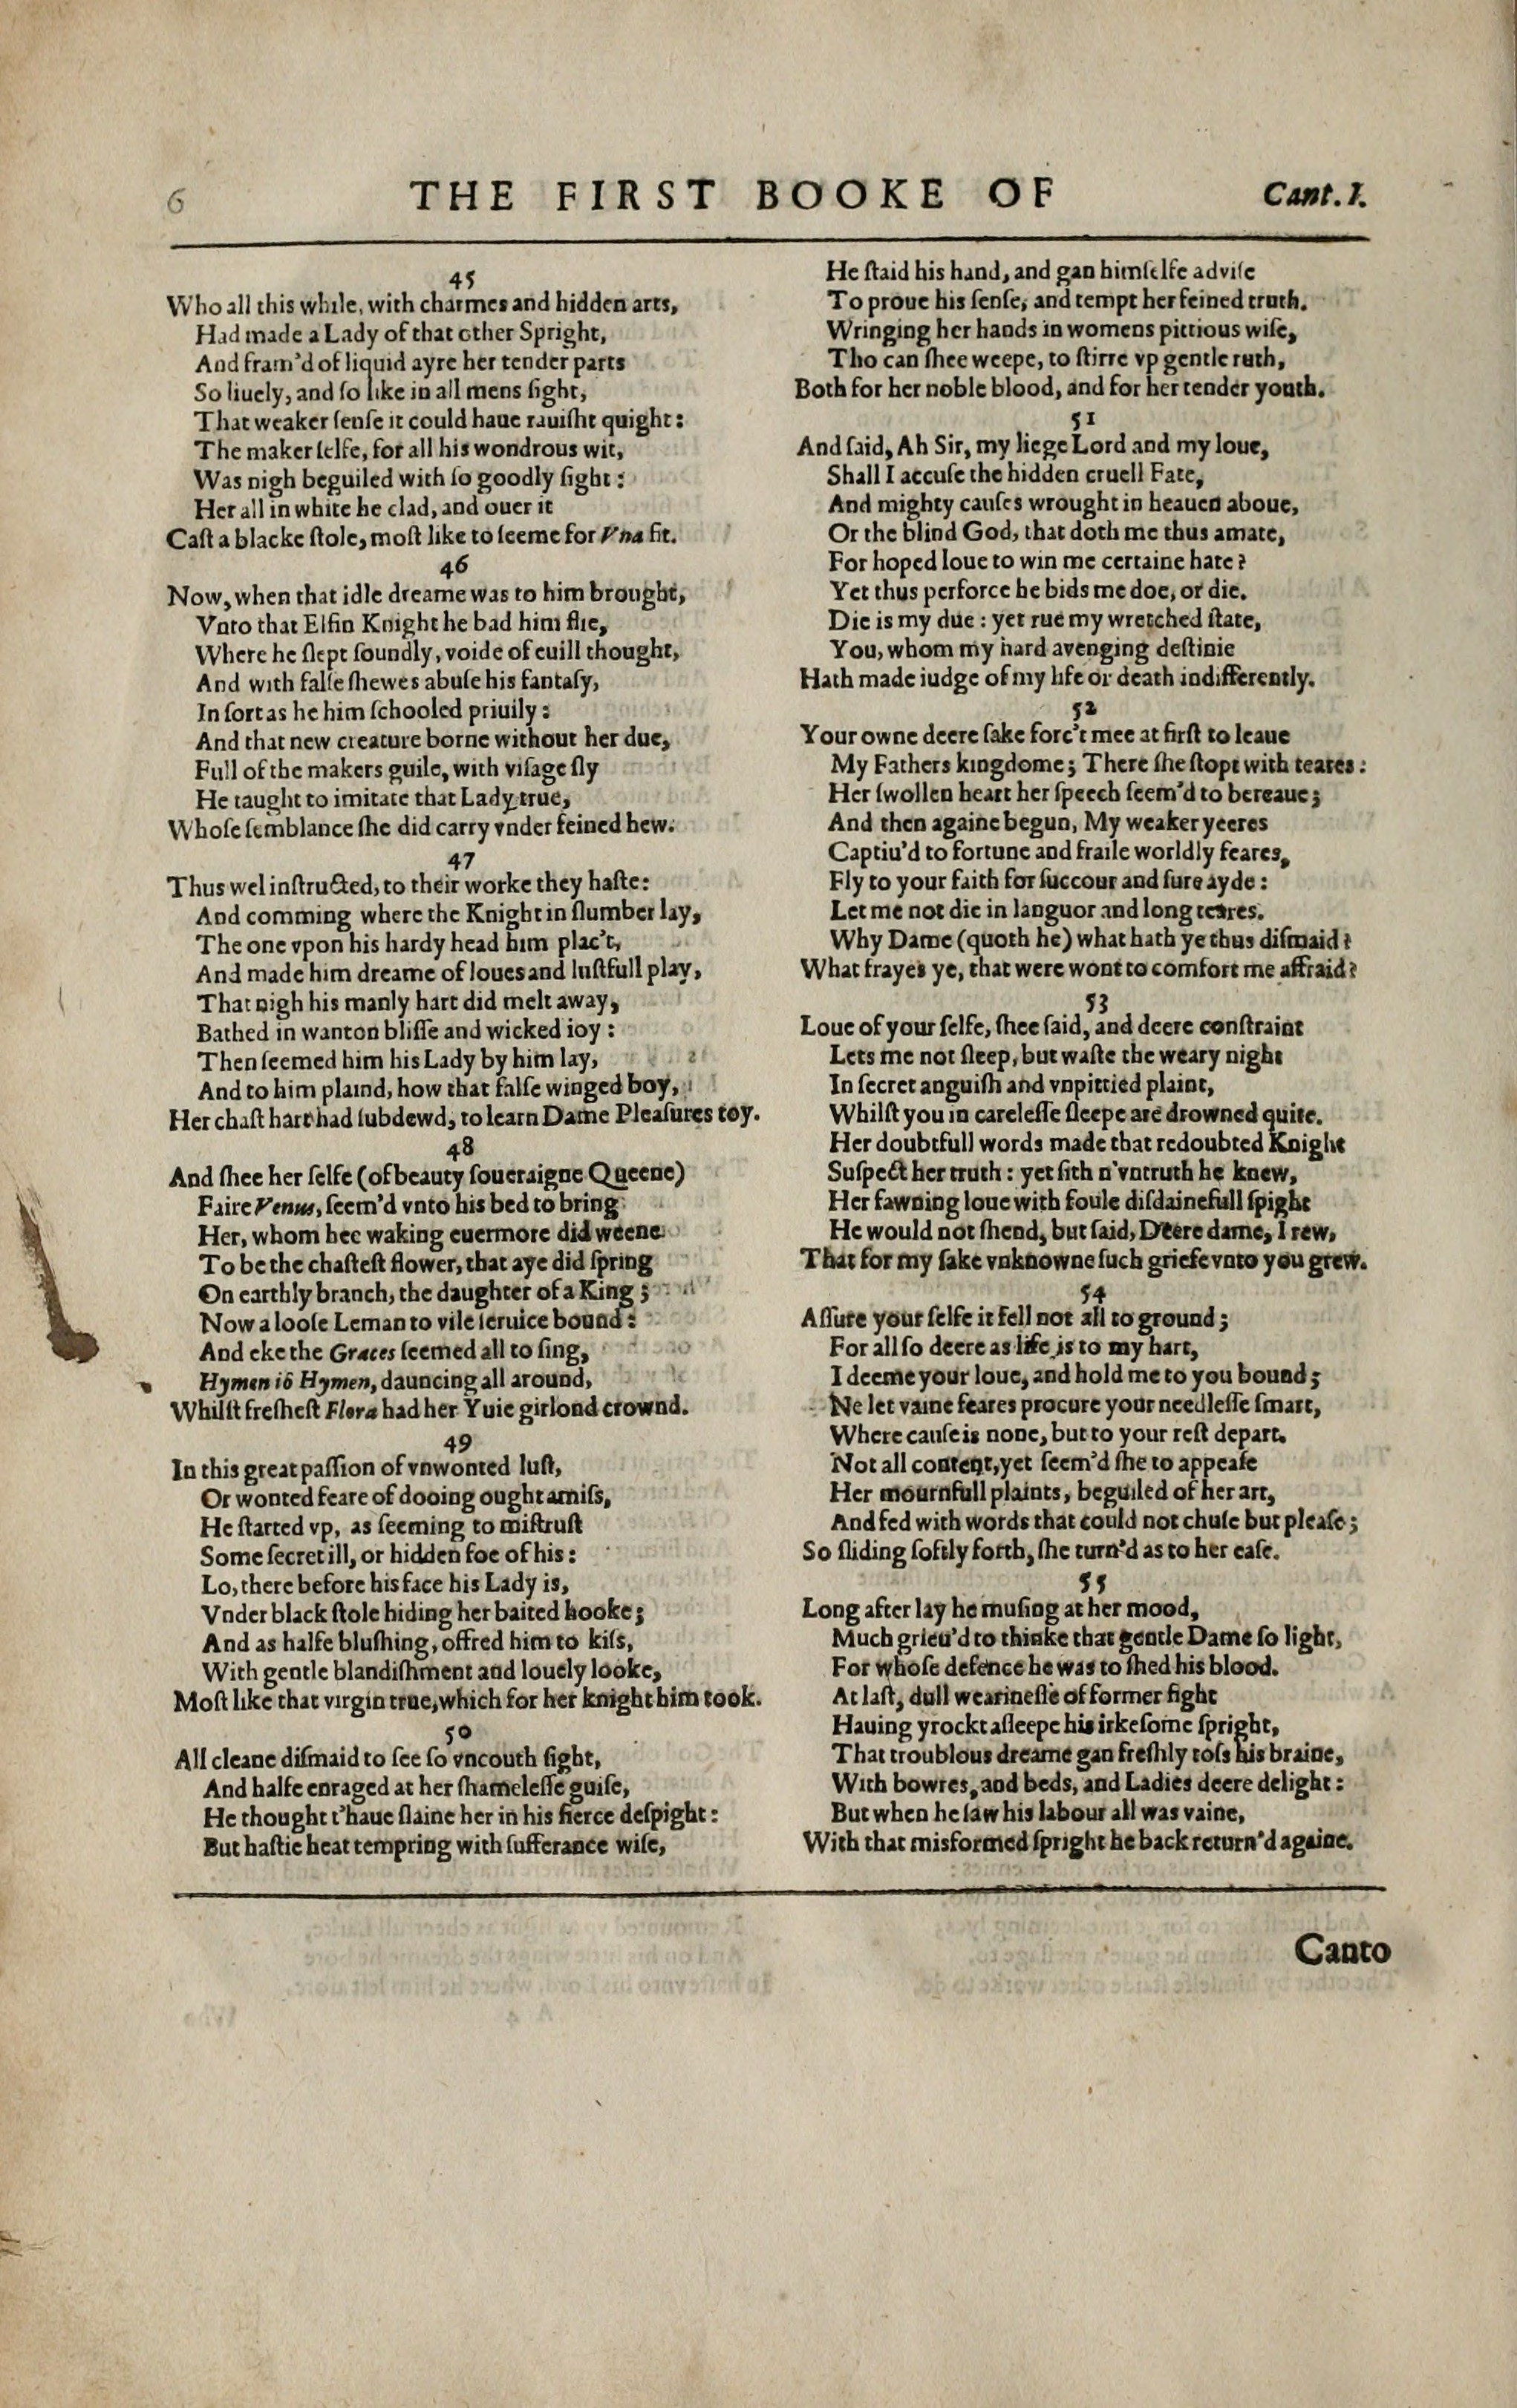 6
THE FIRST BOOKE OF
Cant. I.
45
Who all this while, with charmes and hidden arts,
Had made a Lady of that other Spright,
And fram'd of liquid ayre her tender parts
So liuely, and so like in all mens ſight,
That weaker ſenſe it could haue rauiſht quight:
The maker ſelfe, for all his wondrous wit,
Was nigh beguiled with ſo goodly ſight:
Her all in white he clad, and ouer it
Caſt a blacke ſtole, moſt like to ſeeme for Vna fit.
46
Now, when that idle dreame was to him brought,
Vnto that Elfin Knight he bad him flie,
Where he ſlept ſoundly, voide of euill thought,
And with falſe ſhewes abuſe his fantaſy,
In ſort as he him ſchooled priuily:
And that new creature borne without her due,
Full of the makers guile, with viſage ſly
He taught to imitate that Lady true,
Whoſe ſemblance ſhe did carry vnder feined hew.
47
Thus wel inſtructed, to their worke they haſte:
And comming where the Knight in ſlumber lay,
The one vpon his hardy head him plac't,
And made him dreame of loues and luſtfull play,
That nigh his manly hart did melt away,
Bathed in wanton bliſſe and wicked ioy:
Then ſeemed him his Lady by him lay,
And to him plaind, how that falſe winged boy,
Her chaſt hart had ſubdewd, to learn Dame Pleaſures toy.
48
And ſhee her ſelfe (of beauty ſoueraigne Queene)
Faire Venus, ſeem'd vnto his bed to bring
Her, whom hee waking euermore did weene
To be the chaſteſt flower, that aye did ſpring
On earthly branch, the daughter of a King;
Now a looſe Leman to vile ſeruice bound:
And eke the Graces ſeemed all to ſing,
Hymen iô Hymen, dauncing all around,
Whilſt freſheſt Flora had her Yuie girlond crownd.
49
In this great paſſion of vnwonted luſt,
Or wonted feare of dooing ought amiſs,
He ſtarted vp, as ſeeming to miſtruſt
Some ſecret ill, or hidden foe of his:
Lo, there before his face his Lady is,
Vnder black ſtole hiding her baited hooke;
And as halfe bluſhing, offred him to kiſs,
With gentle blandiſhment and louely looke,
Moſt like that virgin true, which for her knight him took.
50
All cleane diſmaid to ſee ſo vncouth ſight,
And halfe enraged at her ſhameleſſe guiſe,
He thought t'haue ſlaine her in his fierce deſpight:
But haſtie heat tempring with ſufferance wiſe,
He ſtaid his hand, and gan himſelfe adviſe
To proue his ſenſe, and tempt her feined truth.
Wringing her hands in womens pittious wiſe,
Tho can ſhee weepe, to ſtirre vp gentle ruth,
Both for her noble blood, and for her tender youth.
51
And ſaid, Ah Sir, my liege Lord and my loue,
Shall I accuſe the hidden cruell Fate,
And mighty cauſes wrought in heauen aboue,
Or the blind God, that doth me thus amate,
For hoped loue to win me certaine hate?
Yet thus perforce he bids me doe, or die.
Die is my due: yet rue my wretched ſtate,
You, whom my hard avenging deſtinie
Hath made iudge of my life or death indifferently.
52
Your owne deere ſake forc't mee at firſt to leaue
My Fathers kingdome; There ſhe ſtopt with teares:
Her ſwollen heart her ſpeech ſeem'd to bereaue;
And then againe begun, My weaker yeeres
Captiu'd to fortune and fraile worldly feares,
Fly to your faith for ſuccour and ſure ayde:
Let me not die in languor and long teares.
Why Dame (quoth he) what hath ye thus diſmaid?
What frayes ye, that were wont to comfort me affraid?
53
Loue of your ſelfe, ſhee ſaid, and deere conſtraint
Lets me not ſleep, but waſte the weary night
In ſecret anguiſh and vnpittied plaint,
Whilſt you in careleſſe ſleepe are drowned quite.
Her doubtfull words made that redoubted Knight
Suſpect her truth: yet ſith n'vntruth he knew,
Her fawning loue with foule diſdainefull ſpight
He would not ſhend, but ſaid, Deere dame, I rew,
That for my ſake vnknowne ſuch griefe vnto you grew.
54
Aſſure your ſelfe it fell not all to ground;
For all ſo deere as life is to my hart,
I deeme your loue, and hold me to you bound;
Ne let vaine feares procure your needleſſe ſmart,
Where cauſe is none, but to your reſt depart.
Not all content, yet ſeem'd ſhe to appeaſe
Her mournfull plaints, beguiled of her art,
And fed with words that could not chuſe but pleaſe;
So ſliding ſoftly forth, ſhe turn'd as to her eaſe.
55
Long after lay he muſing at her mood,
Much grieu'd to thinke that gentle Dame ſo light,
For whoſe defence he was to ſhed his blood.
At laſt, dull wearineſſe of former fight
Hauing yrockt aſleepe his irkeſome ſpright,
That troublous dreame gan freſhly toſs his braine,
With bowres, and beds, and Ladies deere delight:
But when he ſaw his labour all was vaine,
With that misformed ſpright he back return'd againe.
Canto